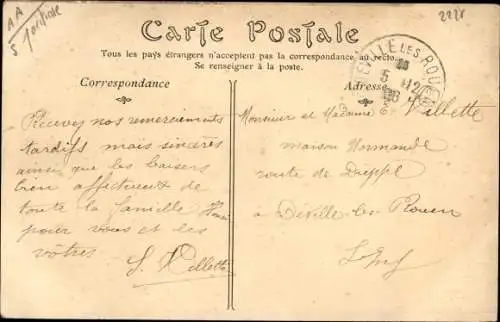 AA
5
2228
Carte Postale
Tous les pays étrangers n'acceptent pas la correspondance au recto.
Se renseigner à la poste.
Correspondance
Adresse
DEVILLE LES ROUEN
5 -12
Recevez nos remerciements
tardifs mais sincères
ainsi que les baisers
bien affectueux de
toute la famille
pour vous et les
vôtres
S. Villette
Monsieur et Madame E. Villette
maison Normande
route de Dieppe
a Déville les Rouen
S. Inf